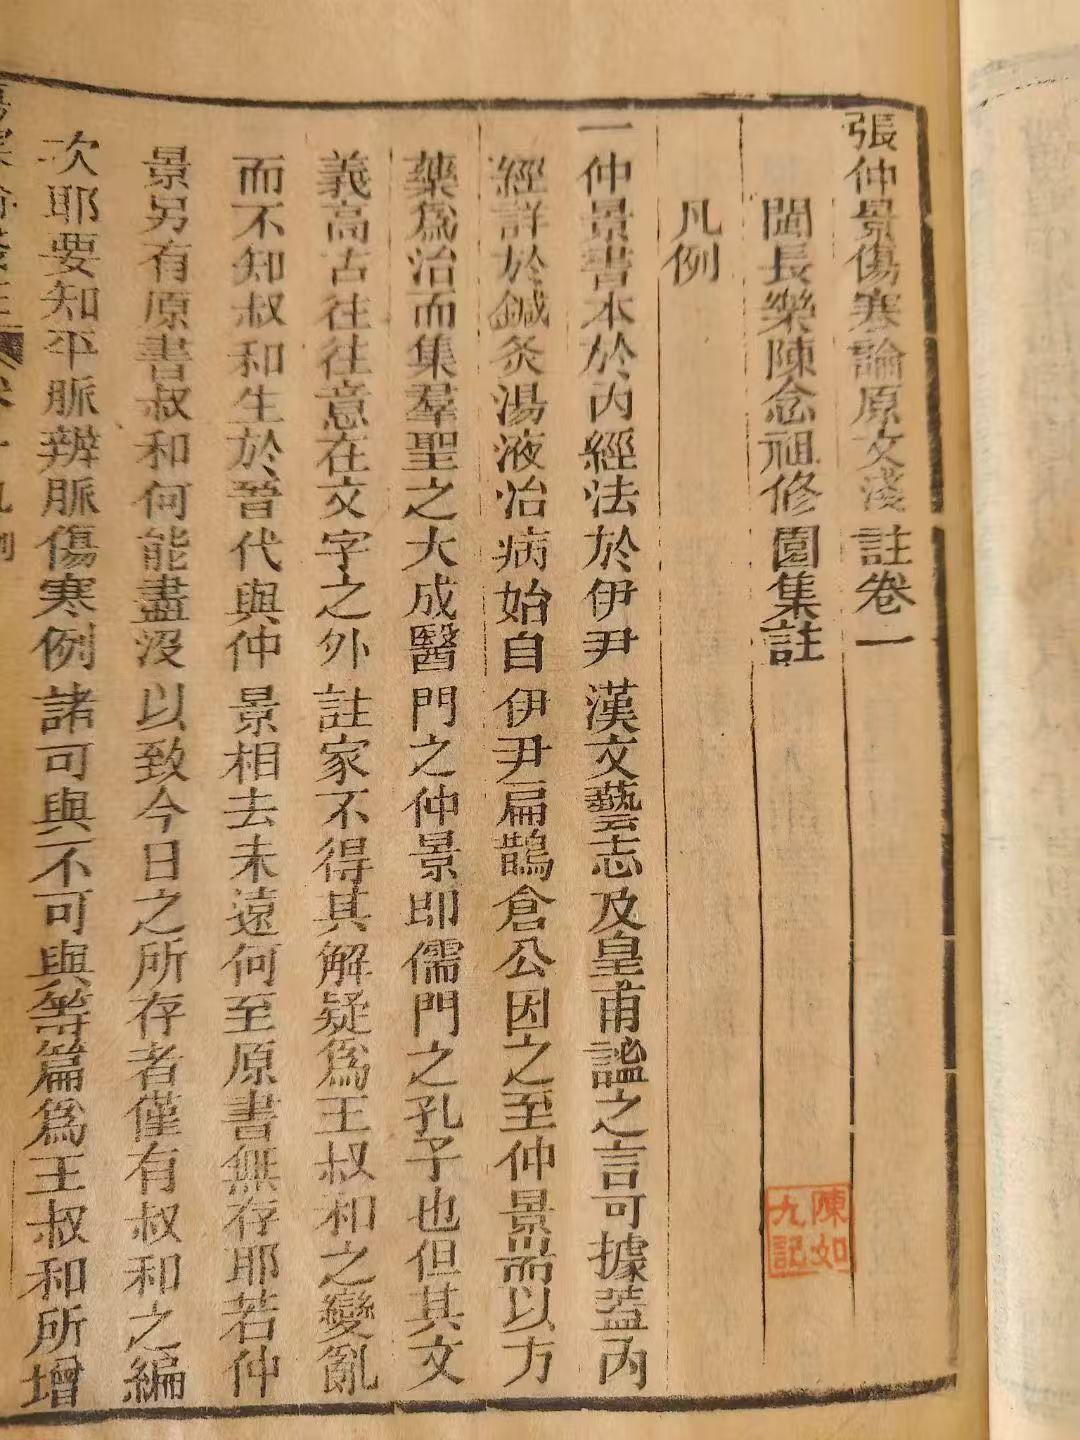 張仲景傷寒論原文淺註卷一
閩長樂陳念祖修園集註
陳如九記
凡例
一仲景書本於內經法於伊尹漢文藝志及皇甫謐之言可據蓋內
經詳於鍼灸湯液治病始自伊尹扁鵲倉公因之至仲景耑以方
藥爲治而集羣聖之大成醫門之仲景即儒門之孔子也但其文
義高古往往意在文字之外註家不得其解疑爲王叔和之變亂
而不知叔和生於晉代與仲景相去未遠何至原書無存耶若仲
景另有原書叔和何能盡沒以致今日之所存者僅有叔和之編
次耶要知平脈辨脈傷寒例諸可與不可與等篇爲王叔和所增